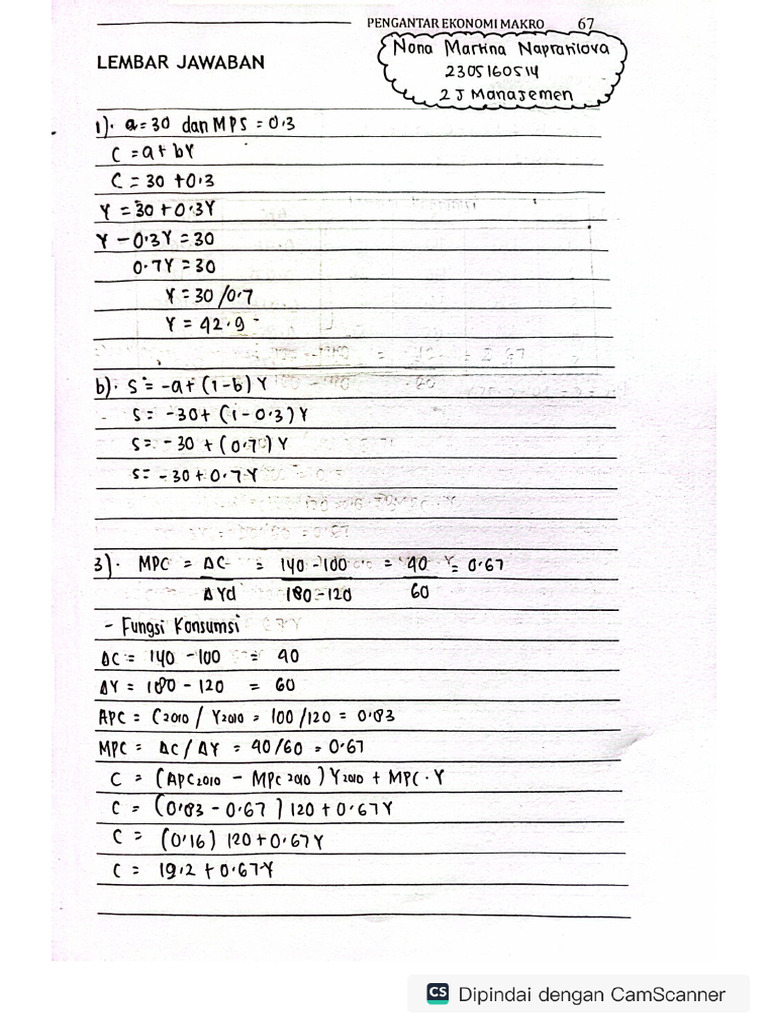 PENGANTAR EKONOMI MAKRO 67
LEMBAR JAWABAN
Nona Martina Napratilova
2305160514
2 J Manajemen
1). a = 30 dan MPS = 0.3
C = a + bY
C = 30 + 0.3
Y = 30 + 0.3Y
Y - 0.3Y = 30
0.7Y = 30
Y = 30 / 0.7
Y = 42.9
b). S = -a + (1-b) Y
S = -30 + (1 - 0.3) Y
S = -30 + (0.7) Y
S = -30 + 0.7Y
3). MPC = ΔC = 140 - 100 = 40 = 0.67
ΔYd 180 - 120 60
- Fungsi Konsumsi
ΔC = 140 - 100 = 40
ΔY = 180 - 120 = 60
APC = C2010 / Y2010 = 100 / 120 = 0.83
MPC = ΔC / ΔY = 40/60 = 0.67
C = (APC2010 - MPC2010) Y2010 + MPC . Y
C = (0.83 - 0.67) 120 + 0.67Y
C = (0.16) 120 + 0.67Y
C = 19.2 + 0.67Y
CS Dipindai dengan CamScanner